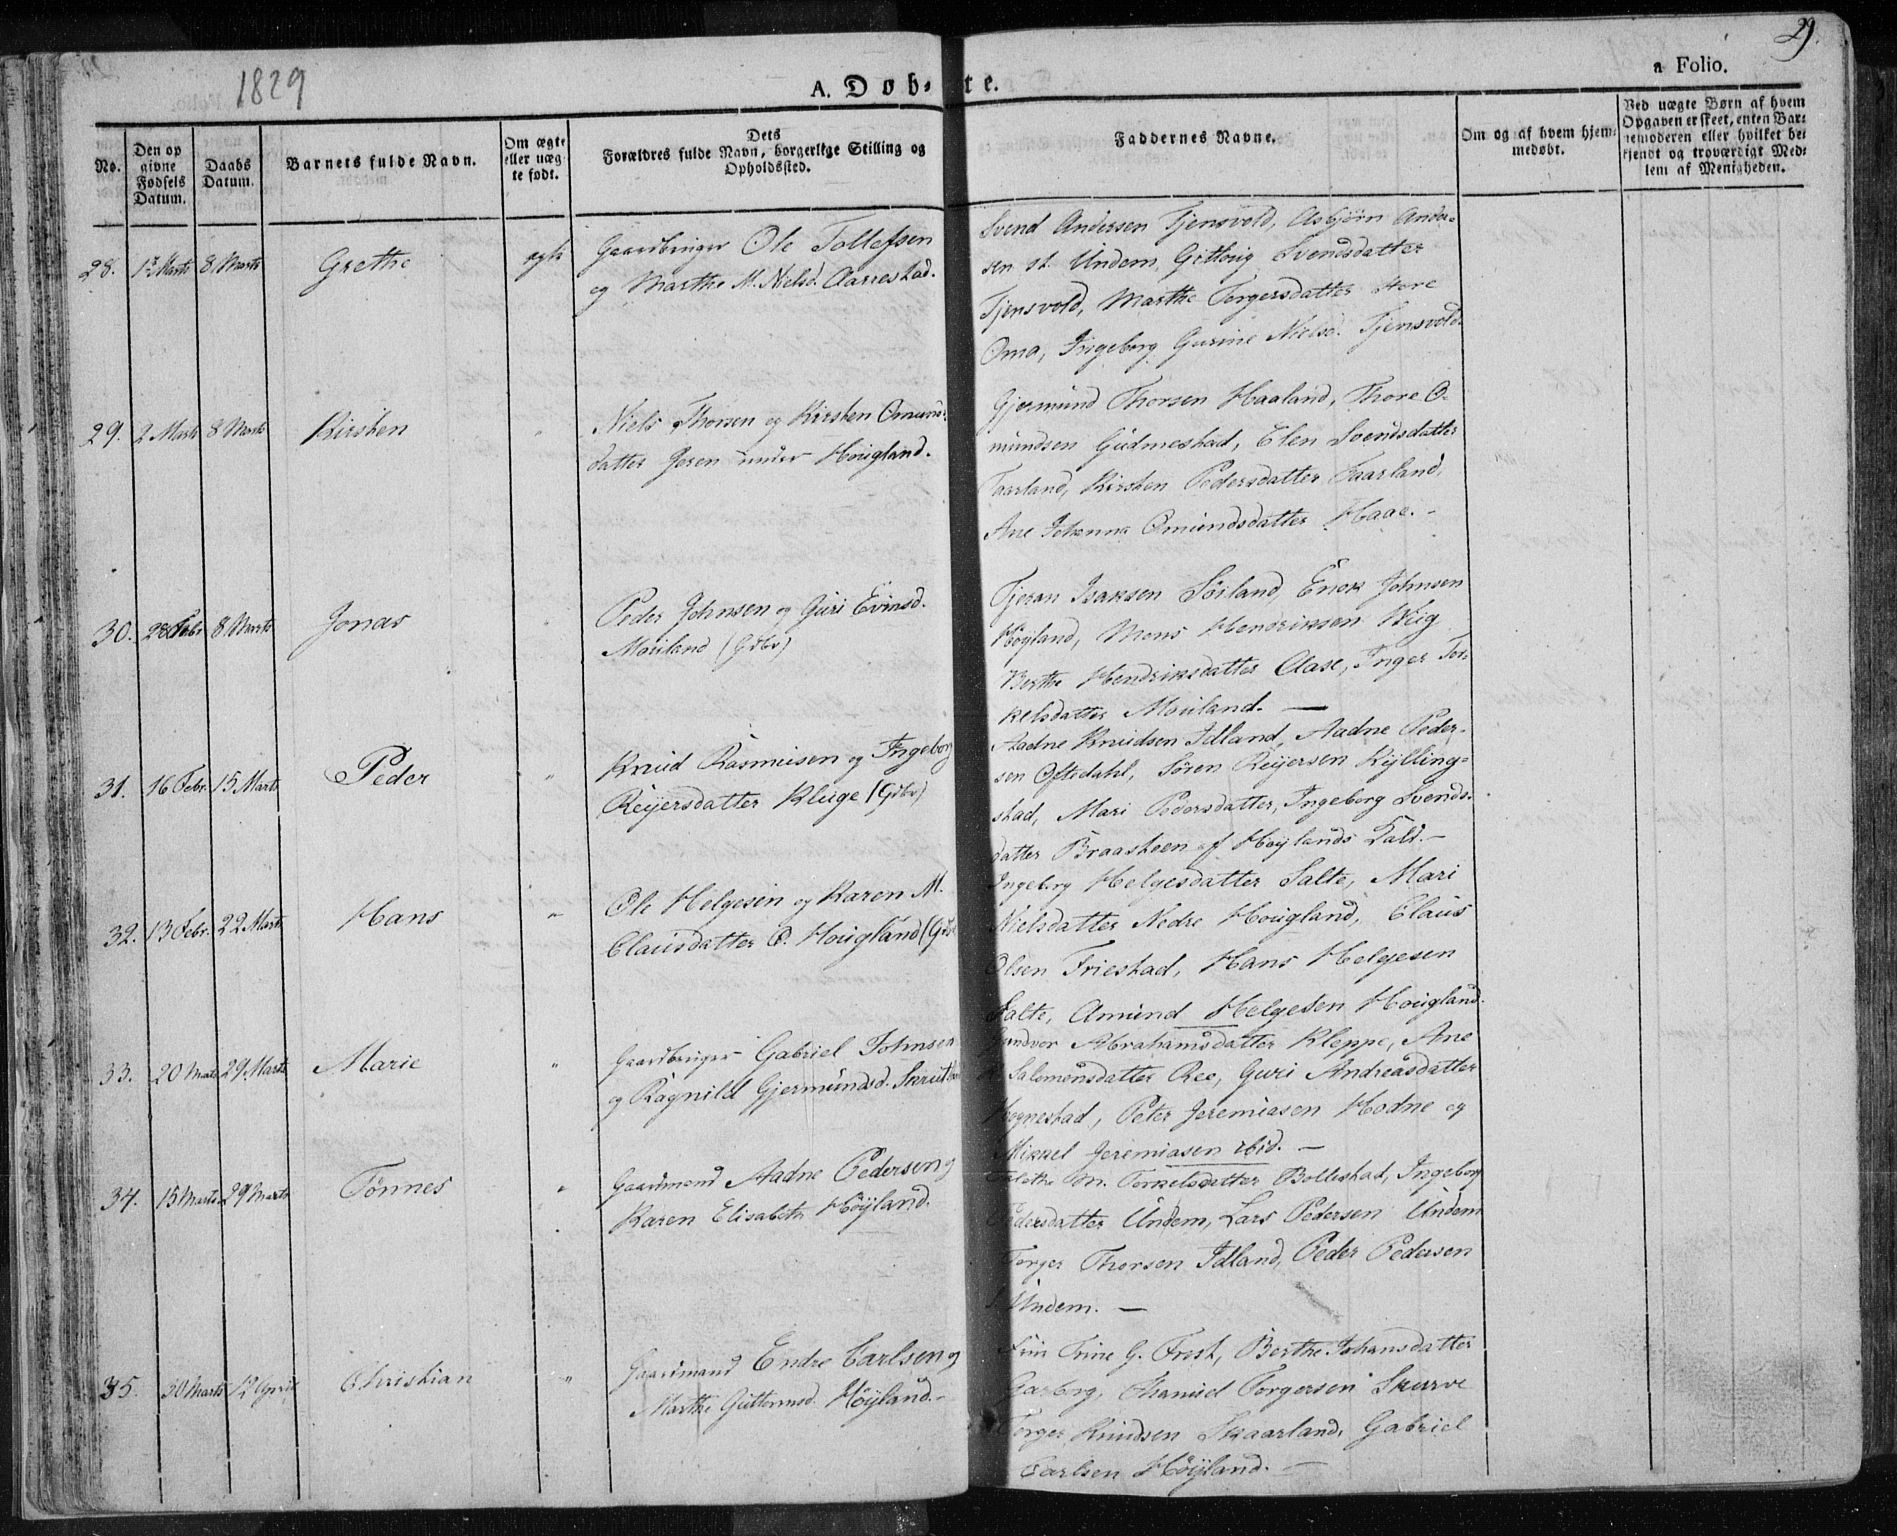 1829
A. Døb-te.
29.
a Folio.
No.
Den opgivne Fødsels Datum.
Daabs Datum.
Barnets fulde Navn.
Om ægte eller uægte født.
Dets Forældres fulde Navn, borgerlige Stilling og Opholdssted.
Faddernes Navne.
Om og af hvem hjemmedøbt.
Ved uægte Børn af hvem Opgaven er skeet, enten Barnemoderen eller hvilket bekjendt og troværdigt Medlem af Menigheden.
28. 1ste Marts 8 Marts Grethe ægte
Gaardbruger Ole Tollefsen
og Marthe M. Nielsd. Aarrestad.
Svend Andersen Tjensvold, Asbjørn Ander=
sen st. Undem, Gitlorig Svendsdatter
Tjensvold, Marthe Torgersdatter store
Oma, Ingeborg Gurine Nielsd. Tjensvold.
29. 2 Marts 8 Marts Kirsten "
Niels Thorsen og Kirsten Omunds=
datter Jeren under Hougland.
Gjermund Thorsen Haaland, Thore O=
mundsen Gudmestad, Elen Svendsdatter
Taarland, Kirsten Pedersdatter Taarland,
Ane Johanna Omundsdatter Haae. -
30. 28 Febr 8 Marts Jonas "
Peder Johnsen og Guri Evinsd.
Mauland (Grbr)
Tjeran Isaksen Söiland, Enok Johnsen
Höyland, Mons Hendriksen Wiig
Berthe Hendriksdatter Aase, Inger Tor=
kelsdatter Mauland. —
31. 16 Febr. 15 Marts Peder "
Knud Rasmusen og Ingeborg
Reijersdatter Kluge (Grbr)
Aadne Knudsen Idland, Aadne Peder=
sen Oftedahl, Sören Reijersen Kylling=
stad, Mari Pedersdatter, Ingeborg Svends=
datter Braasteen af Höylands Kald. -
32. 13 Febr. 22 Marts Hans "
Ole Helgesen og Karen M.
Clausdatter O. Hougland (Grbr
Ingeborg Helgesdatter Salte, Mari
Nielsdatter Nedre Hougland, Claus
Olsen Friestad, Hans Helgesen
Salte, Amund Helgesen Hougland.
33. 20 Marts 29 Marts Marie "
Gaardbruger Gabriel Johnsen
og Ragnild Gjermundsd.
Gundvor Abrahamsdatter Kleppe, Ane
Salomonsdatter Ree, Guri Andreasdatter
Hognestad, Peter Jeremiasen Hodne og
Mikkel Jeremiasen ibid. —
34. 15 Marts 29 Marts Tönnes "
Gaardmand Aadne Pedersen og
Karen Elisabeth Höyland.
M. Torkelsdatter Bollestad, Ingeborg
Pedersdatter Undem, Lars Pedersen Undem
Torger Thorsen Idland, Peder Pedersen
Undem. —
35. 30 Marts 12 April Christian "
Gaardmand Endre Carlsen og
Marthe Guttormsd. Höyland. -
Trine G. Frest, Berthe Johansdatter
Garborg, Thamuel Torgersen Skurve
Torger Knudsen Skaarland, Gabriel
Carlsen Höyland. —